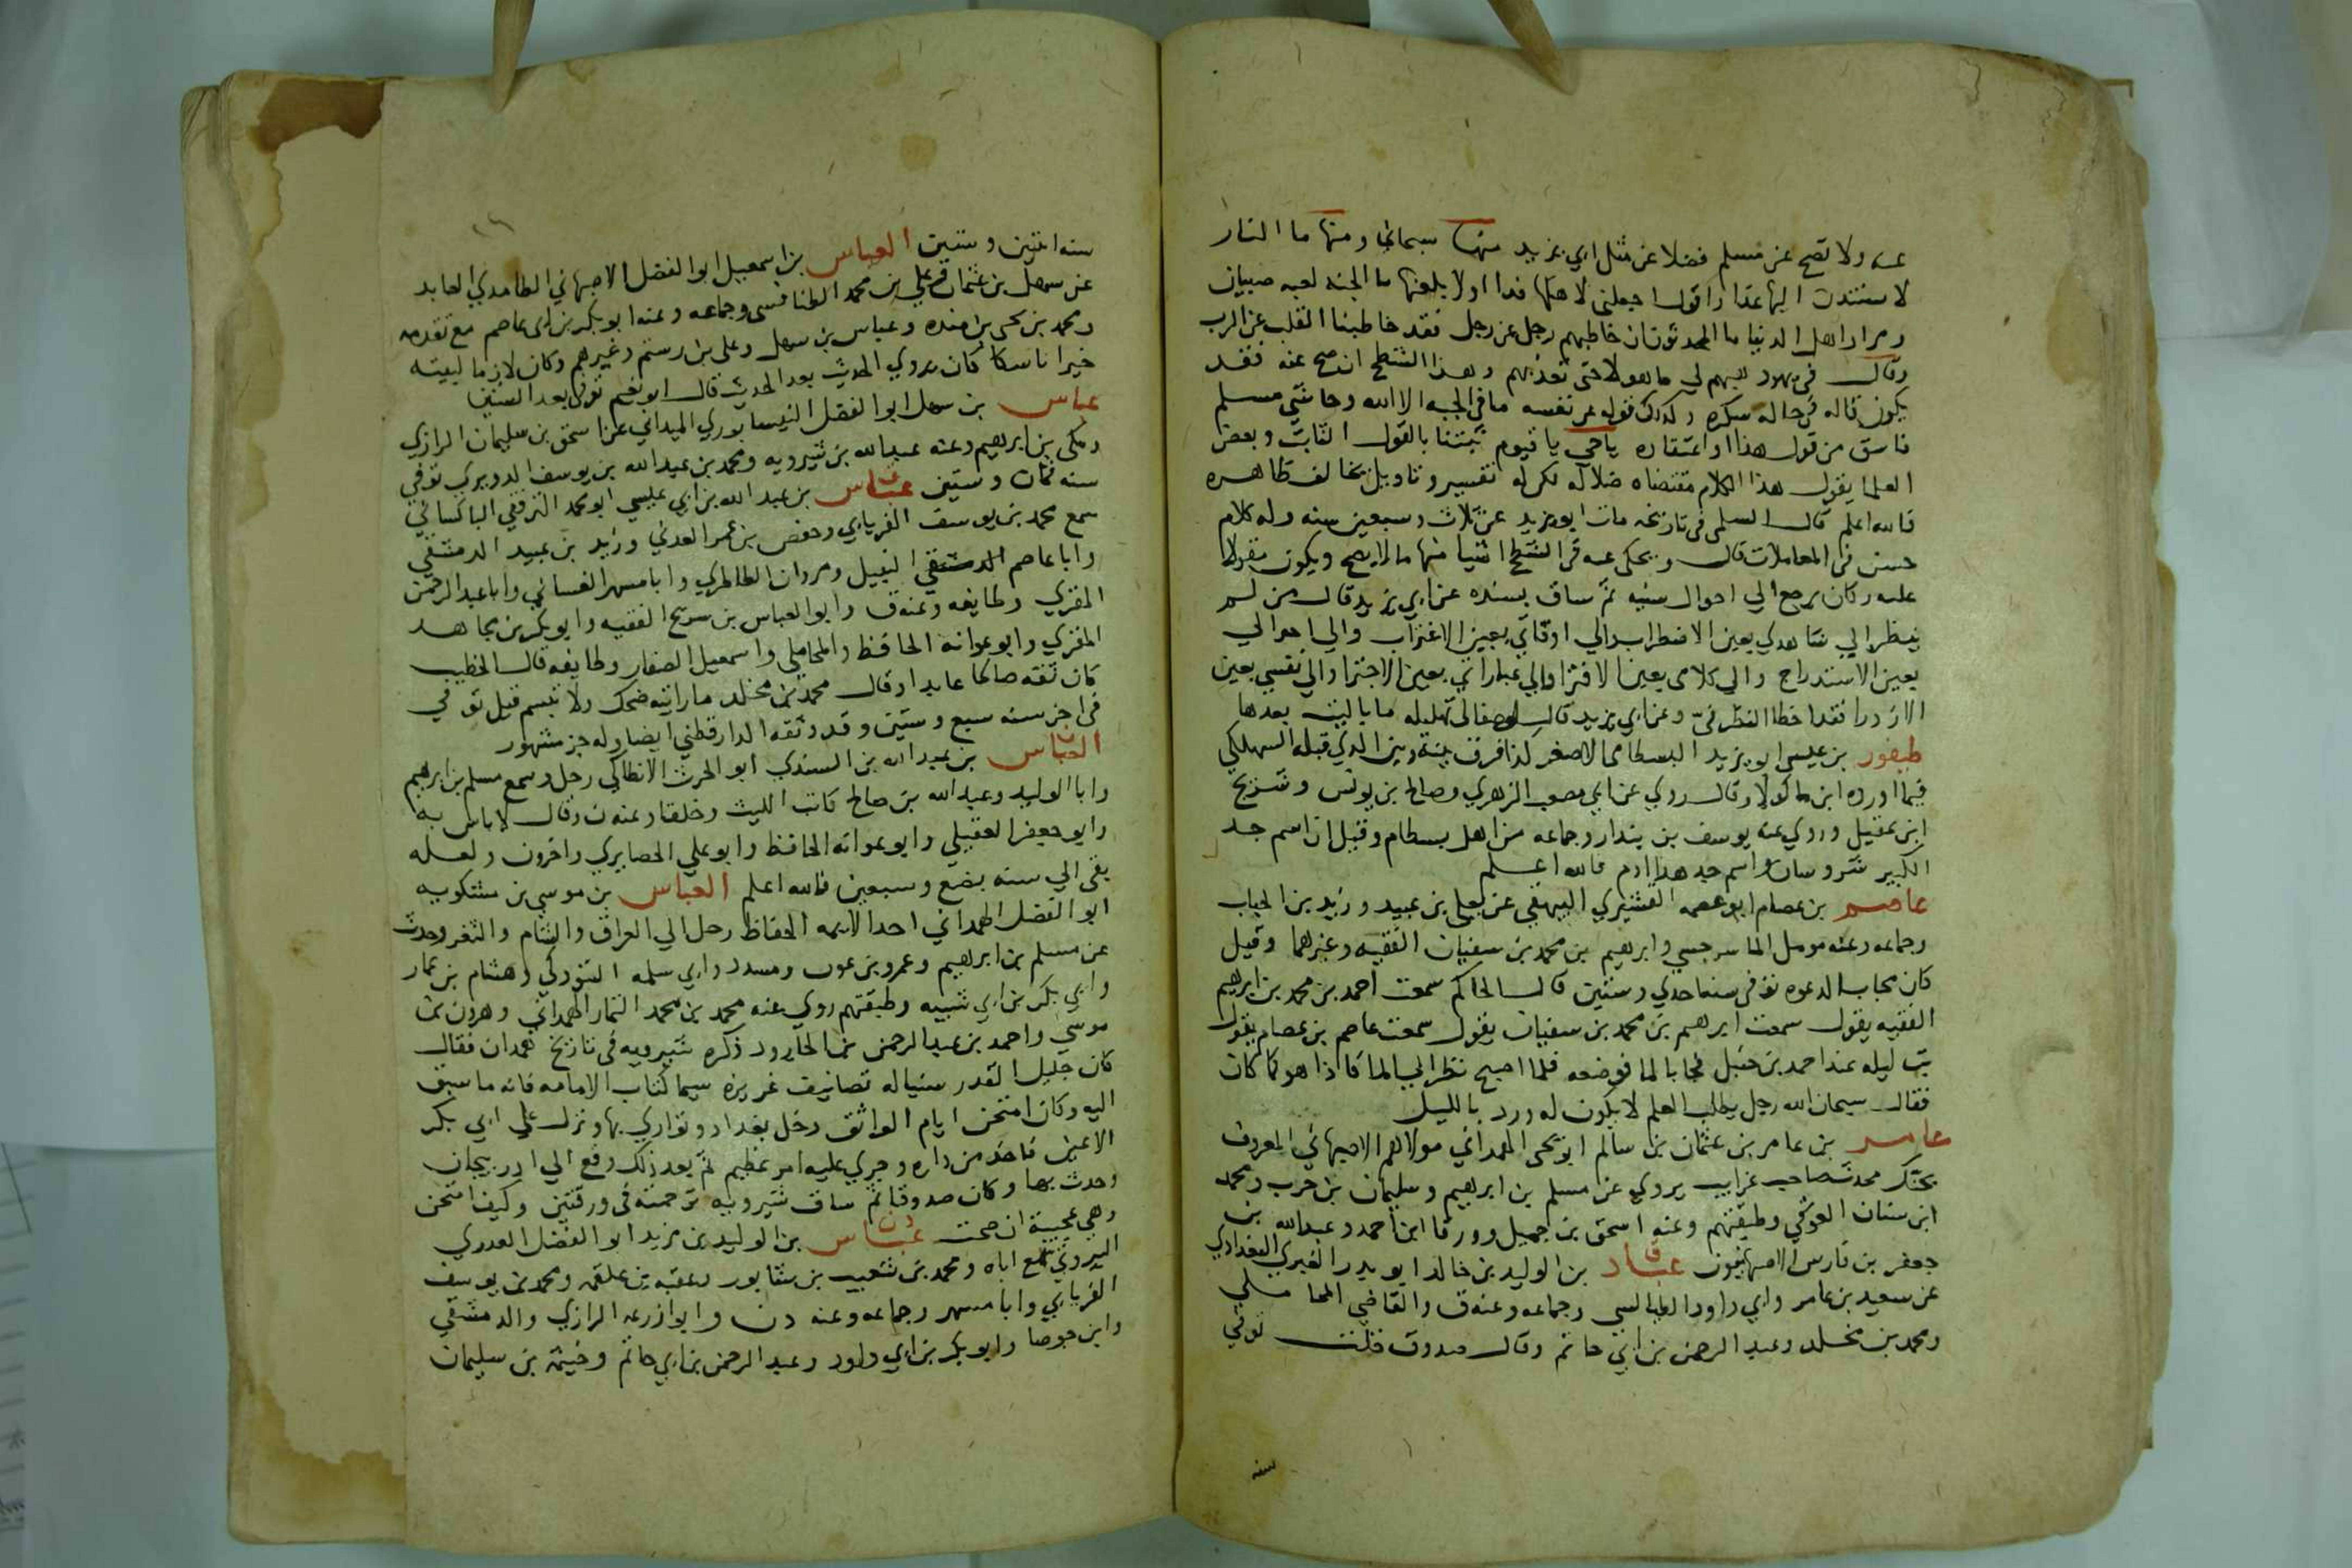 عنه ولا تصح عن مسلم فضلا عن مثل ابي يزيد منها سبحاني ومنها ما النار
لاستندن اليها غدا واقول اجعلني لاهلها فدا اولا بلعنها ما الجنه لعبه صبيان
ومراد اهل الدنيا ما المحدثون ان خاطبهم رجل عن رجل فقد خاطبنا القلب عن الرب
وقال في يهود هبهم لي ما هولا حتى تعذبهم وهذا الشطح ان صح عنه فقد
يكون قاله في حاله سكره وكذلك قوله عن نفسه ما في الجبه الا الله وحاشى مسلم
فاسق من قول هذا او اعتقاده يا حي يا قيوم ثبتنا بالقول الثابت وبعض
العلما يقول هذا الكلام مقتضاه ضلاله لكن له تفسير وتاويل يخالف ظاهره
فالله اعلم قال السلمي في تاريخه مات ابو يزيد عن ثلاث وسبعين سنه وله كلام
حسن في المعاملات قال ويحكى عنه في الشطح اشيا منها ما لا يصح ويكون مقولا
عليه وكان يرجع الي احوال سنيه ثم ساق بسنده عن ابي يزيد قال من لم
ينظر الي شاهدي بعين الاضطراب والي اوقاتي بعين الاغتراب والي احوالي
بعين الاستدراج والي كلامي بعين الافترا والي عباراتي بعين الاجترا والي نفسي بعين
الازدرا فقد اخطا النظر في وعن ابي يزيد قال لو صفا لي تهليله ما باليت بعدها
طيفور بن عيسى ابو يزيد البسطامي الاصغر كذا فرق بينه وبين الذي قبله السهلكي
فيما اورده ابن ماكولا وقال روي عن ابي مصعب الزهري وصالح بن يونس وشريح
ابن عقيل وروي عنه يوسف بن بندار وجماعه من اهل بسطام وقيل ان اسم جد
الكبير شروسان واسم جد هذا ادم فالله اعلم
عاصم بن عصام ابو عصمه القشيري البيهقي عن يعلى بن عبيد وزيد بن الحباب
وجماعه وعنه مومل الماسرجسي وابرهيم بن محمد بن سفيان الفقيه وغيرهما وقيل
كان مجاب الدعوه توفي سنه احدي وستين قال الحاكم سمعت احمد بن محمد بن ابرهيم
الفقيه يقول سمعت ابرهيم بن محمد بن سفيان يقول سمعت عاصم بن عصام يقول
بت ليله عند احمد بن حنبل فجا بالما فوضعه فلما اصبح نظر الي الما فاذا هو كما كان
فقال سبحان الله رجل يطلب العلم لا يكون له ورد بالليل
عامر بن عامر بن عثمان بن سالم ابو يحيى الهمداني مولاهم الاصبهاني المعروف
بحنك محدث صاحب غرايب يروي عن مسلم بن ابرهيم وسليمان بن حرب ومحمد
ابن سنان العوقي وطبقتهم وعنه اسحق بن جميل وورقا ابن احمد وعبد الله بن
جعفر بن فارس الاصبهانيون عباد بن الوليد بن خالد ابو بدر الغبري البغدادي
عن سعيد بن عامر وابي داود الطيالسي وجماعه وعنه ق والقاضي المحاملي
ومحمد بن مخلد وعبد الرحمن بن ابي حاتم وقال صدوق قلت توفي
سنه
سنه اثنتين وستين العباس بن اسمعيل ابو الفضل الاصبهاني الطامذي العابد
عن سهل بن عثمان وعلي بن محمد الطنافسي وجماعه وعنه ابو بكر بن ابي عاصم مع تقدمه
ومحمد بن يحيى بن منده وعباس بن سهل وعلي بن رستم وغيرهم وكان لازما لبيته
خيرا ناسكا كان يروي الحديث بعد الحديث قال ابو نعيم توفي بعد الستين
عباس بن سهل ابو الفضل النيسابوري الميداني عن اسحق بن سليمان الرازي
ومكي بن ابرهيم وعنه عبد الله بن شيرويه ومحمد بن عبد الله بن يوسف الدويري توفي
سنه ثمان وستين عباس بن عبد الله بن ابي عيسي ابو محمد الترقفي الباكسائي
سمع محمد بن يوسف الفريابي وحفص بن عمر العدني وزيد بن عبيد الدمشقي
وابا عاصم الدمشقي النبيل ومروان الطاطري وابا مسهر الغساني وابا عبد الرحمن
المقري وطايفه وعنه ق وابو العباس بن سريج الفقيه وابو بكر بن مجاهد
المقري وابو عوانه الحافظ والمحاملي واسمعيل الصفار وطايفه قال الخطيب
كان ثقه صالحا عابدا وقال محمد بن مخلد ما رايته ضحك ولا تبسم قيل توفي
في اخر سنه سبع وستين وقد وثقه الدارقطني ايضا وله جز مشهور
العباس بن عبد الله بن السندي ابو الحرث الانطاكي رحل وسمع مسلم بن ابرهيم
وابا الوليد وعبد الله بن صالح كاتب الليث وخلقا وعنه ن وقال لا باس به
وابو جعفر العقيلي وابو عوانه الحافظ وابو علي الحصايري واخرون ولعله
بقي الي سنه بضع وسبعين فالله اعلم العباس بن موسي بن مشكويه
ابو الفضل الهمداني احد الايمه الحفاظ رحل الي العراق والشام والثغر وحدث
عن مسلم بن ابرهيم وعمرو بن عون ومسدد وابي سلمه التبوذكي وهشام بن عمار
وابي بكر بن ابي شيبه وطبقتهم روي عنه محمد بن محمد التمار الهمداني وهرون بن
موسي واحمد بن عبد الرحمن بن الجارود ذكره شيرويه في تاريخ همدان فقال
كان جليل القدر سنيا له تصانيف غزيره سيما كتاب الامامه فانه ما سبق
اليه وكان امتحن ايام الواثق دخل بغداد وتواري بها ونزل علي ابي بكر
الاعين فاخذ من داره وجري عليه امر عظيم ثم بعد ذلك وقع الي اذربيجان
وحدث بها وكان صدوقا ثم ساق شيرويه ترجمته في ورقتين وكيف امتحن
وهي عجيبة ان صحت عباس بن الوليد بن مزيد ابو الفضل العذري
البيروتي سمع اباه ومحمد بن شعيب بن شابور وعقبه بن علقمه ومحمد بن يوسف
الفريابي وابا مسهر وجماعه وعنه د ن وابو زرعه الرازي والدمشقي
وابن جوصا وابو بكر بن ابي داود وعبد الرحمن بن ابي حاتم وخيثمة بن سليمان